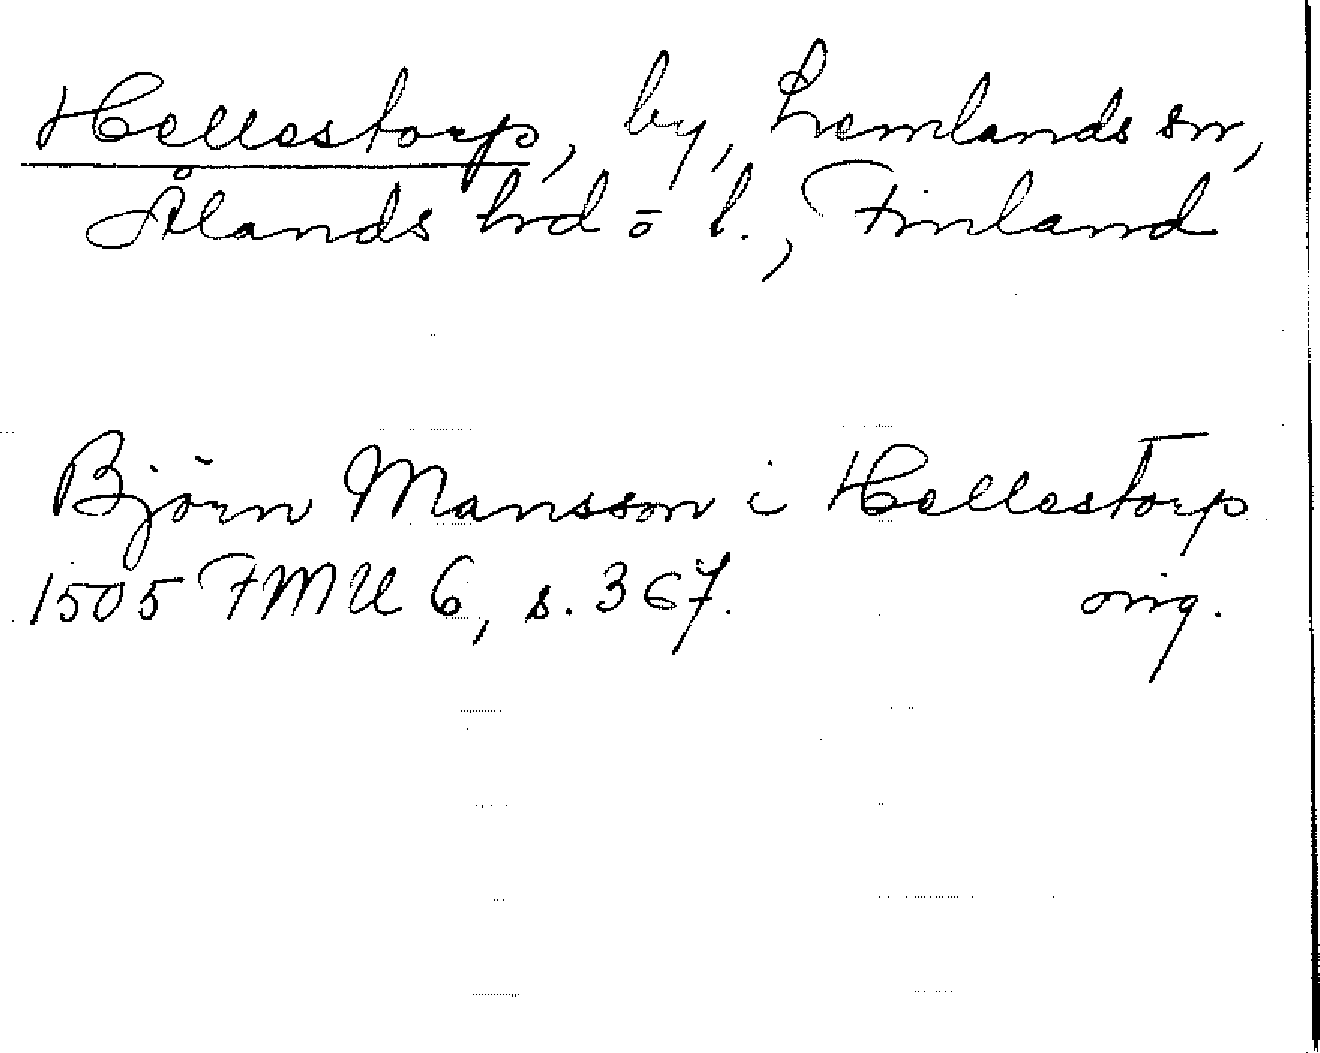 Hellestorp, by, Lemlands sn,
Ålands hd = l., Finland
Björn Mansson i Hellestorp
1505 FMU 6, s. 367. orig.